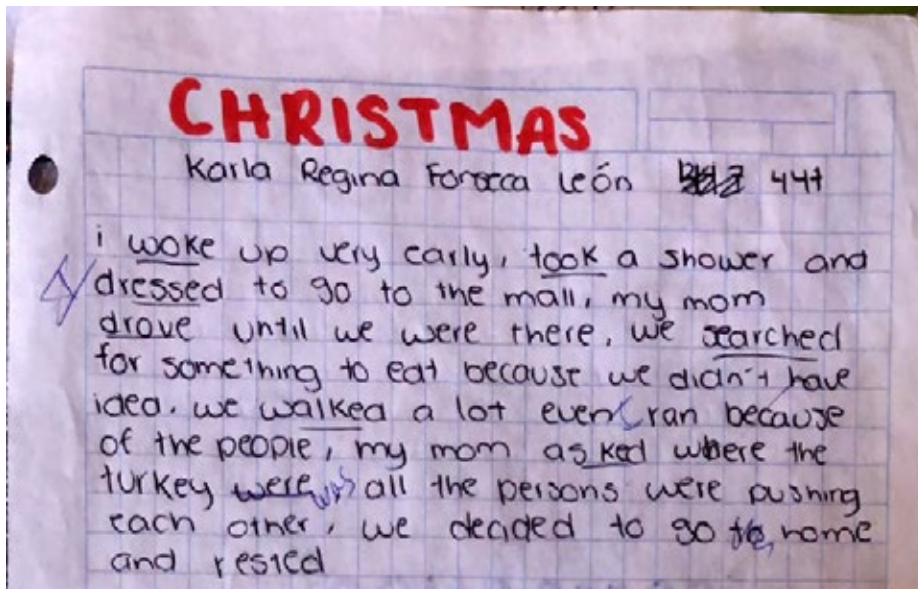 CHRISTMAS
Karla Regina Fonseca León 441
i woke up very early, took a shower and
dressed to go to the mall, my mom
drove until we were there, we searched
for something to eat because we didn't have
idea. we walked a lot even ran because
of the people, my mom asked where the
turkey were was all the persons were pushing
each other, we decided to go to home
and rested